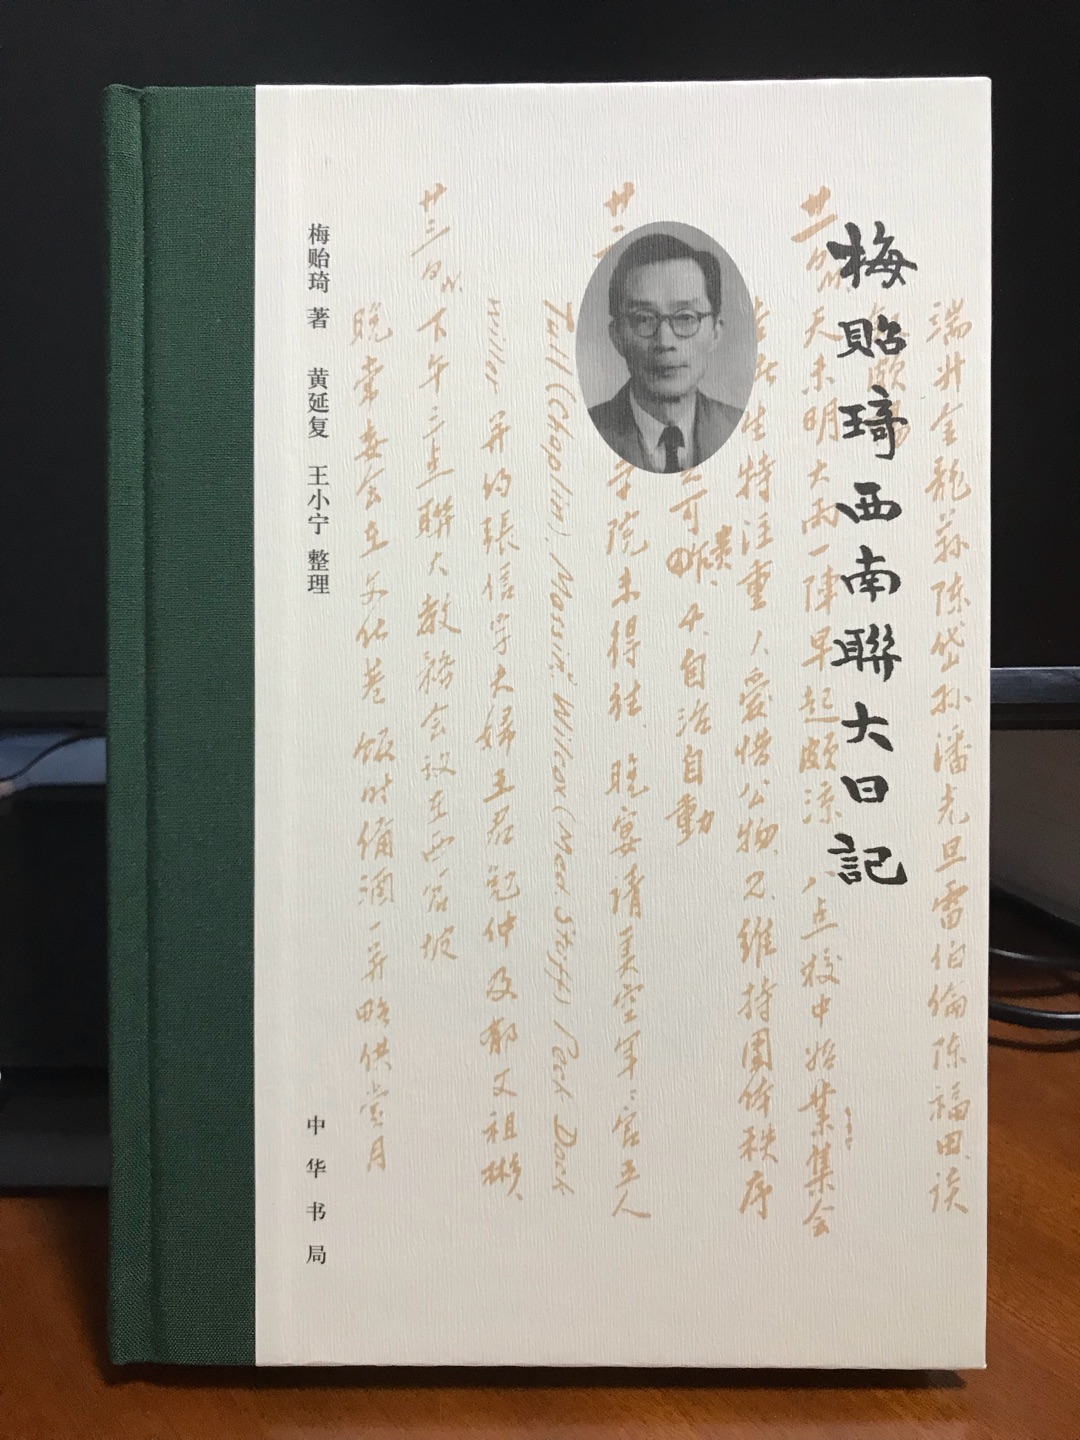 梅貽琦西南聯大日記
梅贻琦 著 黄延复 王小宁 整理
中华书局
端升金龍蓀陳岱孫潘光旦雷伯倫陳福田、談
天未明大雨一陣早起頗涼 八点校中始業集会
生特注重 人愛惜公物、2.維持團体秩序
4.自治自動
廿二
学院未得往、晚宴請美空軍官五人
Tull (Chaplin), Morris, Wilcox (Meat Stiff) Pack Dock
Miller 并約張信孚夫婦王君勉仲及郁文祖彬、
廿三日 下午三点聯大教務会议在西倉坡
晚常委会在文化巷 飯时備酒一并略供賞月